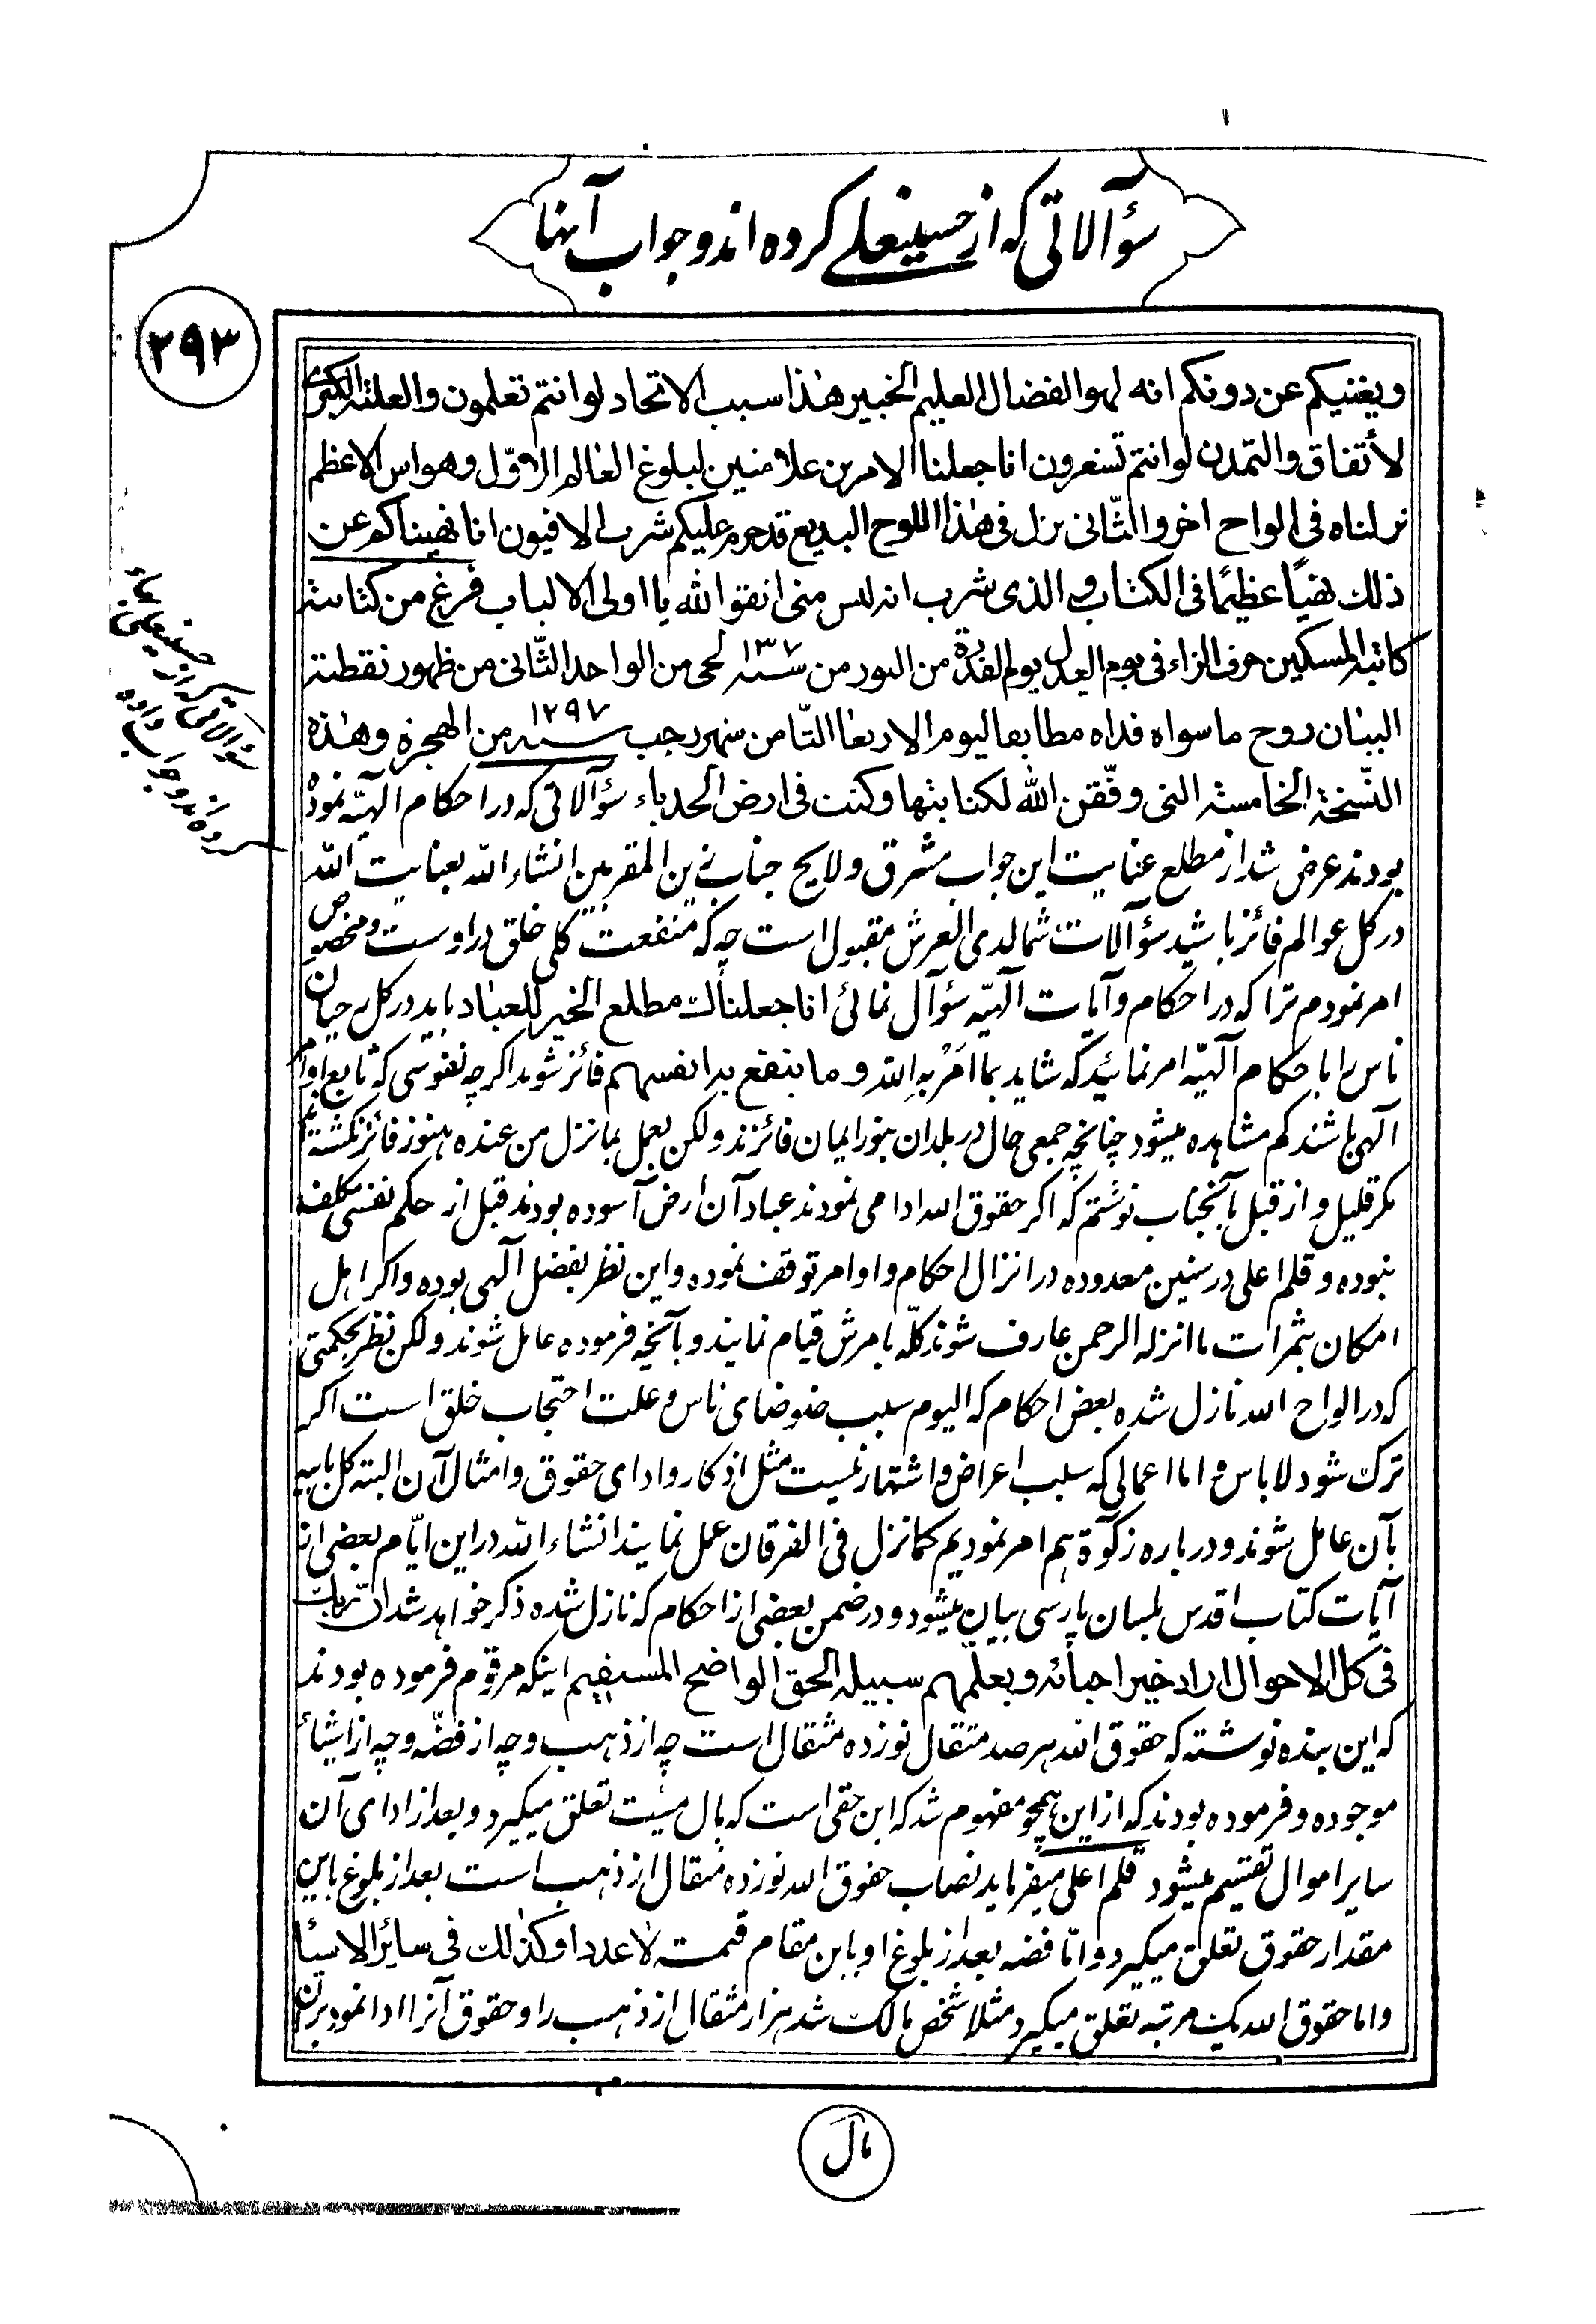 سؤآلاتی که از حسینعلی کرده اند و جواب آنها
۲۹۳
ویغنیکم عن دونکم انه لهو الفضال العلیم الخبیر هذا سبب الاتحاد لو انتم تعلمون والعلة الکبری
لأتفاق والتمدن لو انتم تشعرون انا جعلنا الامرین علامتین لبلوغ العالم الاوّل وهو اس الاعظم
نزلناه فی الواح اخر والثّانی نزل فی هذا اللوح البدیع قد حرم علیکم شرب الافیون انا نهیناکم عن
ذلک نهیًا عظیمًا فی الکتاب والذی شرب انه لیس منی اتقوا الله یا اولی الالباب فرغ من کتابته
کاتبه المسکین حرف الزاء فی یوم العدل یوم القدرة من النور من سنه ۱۳۷ لحی من الواحد الثّانی من ظهور نقطة
البیان روح ما سواه فداه مطابعا لیوم الاربعا الثّامن شهر رجب سنه ۱۲۹۷ من الهجرة وهذه
النّسخة الخامسة التی وفّقنی الله لکتابتها وکنت فی ارض الحدباء سؤآلاتی که در احکام الهیّه نموده
بودند عرض شد از مطلع عنایت این جواب مشرق و لایح جناب زین المقربین انشاء الله بعنایت الله
در کل عوالم فائز باشید سؤآلات شما لدی العرش مقبول است چه که منفعت کلی خلق در اوست و مخصوص
امر نمودم ترا که در احکام و آیات الهیّه سؤآل نمائی انا جعلناک مطلع الخیر للعباد باید در کل احیان
ناس را باحکام الهیّه امر نمائید که شاید بما اَمَر به الله و ما ینفع به انفسهم فائز شوند اگرچه نفوسی که تابع اوامر
الهی باشند کم مشاهده میشود چنانچه جمعی حال در بلدان بنور ایمان فائزند ولکن بعمل بما نزل من عنده هنوز فائز نگشته اند
مگر قلیل و از قبل بآنجناب نوشتم که اگر حقوق الله ادا می نمودند عباد آن ارض آسوده بودند قبل از حکم نفسی مکلف
نبوده و قلم اعلی در سنین معدوده در انزال احکام و اوامر توقف نموده و این نظر بفضل الهی بوده و اگر اهل
امکان بثمرات ما انزله الرحمن عارف شوند کلّه بامرش قیام نمایند و بآنچه فرموده عامل شوند ولکن نظر بحکمتی
که در الواح الله نازل شده بعض احکام که الیوم سبب ضوضای ناس و علت احتجاب خلق است اگر
ترک شود لا باس و اما اعمالی که سبب اعراض و اشتهار نیست مثل اذکار و ادای حقوق و امثال آن البته کل باید
بآن عامل شوند و درباره زکوة هم امر نمودیم کما نزل فی الفرقان عمل نمایند انشاء الله در این ایّام بعضی از
آیات کتاب اقدس بلسان پارسی بیان میشود و در ضمن بعضی از احکام که نازل شده ذکر خواهد شد ان ربک
فی کل الاحوال اراد خیر احبائه ویعلّمهم سبیله الحق الواضح المستقیم اینکه مرقوم فرموده بودند
که این بنده نوشته که حقوق الله هر صد مثقال نوزده مثقال است چه از ذهب و چه از فضّه و چه از اشیاء
موجوده و فرموده بودند که از این همچو مفهوم شد که این حقی است که بمال میّت تعلق میگیرد و بعد از ادای آن
سایر اموال تقسیم میشود قلم اعلی میفرماید نصاب حقوق الله نوزده مثقال از ذهب است بعد از بلوغ باین
مقدار حقوق تعلق میگیرد و امّا فضه بعد از بلوغ او باین مقام قیمت لا عددا وکذلک فی سائر الاشیا
و اما حقوق الله یک مرتبه تعلق میگیرد مثلا شخص مالک شد هزار مثقال از ذهب را و حقوق آنرا ادا نمود بر آن
سؤآلاتی که از حسینعلی بهاء
کرده اند و جواب داده
مال